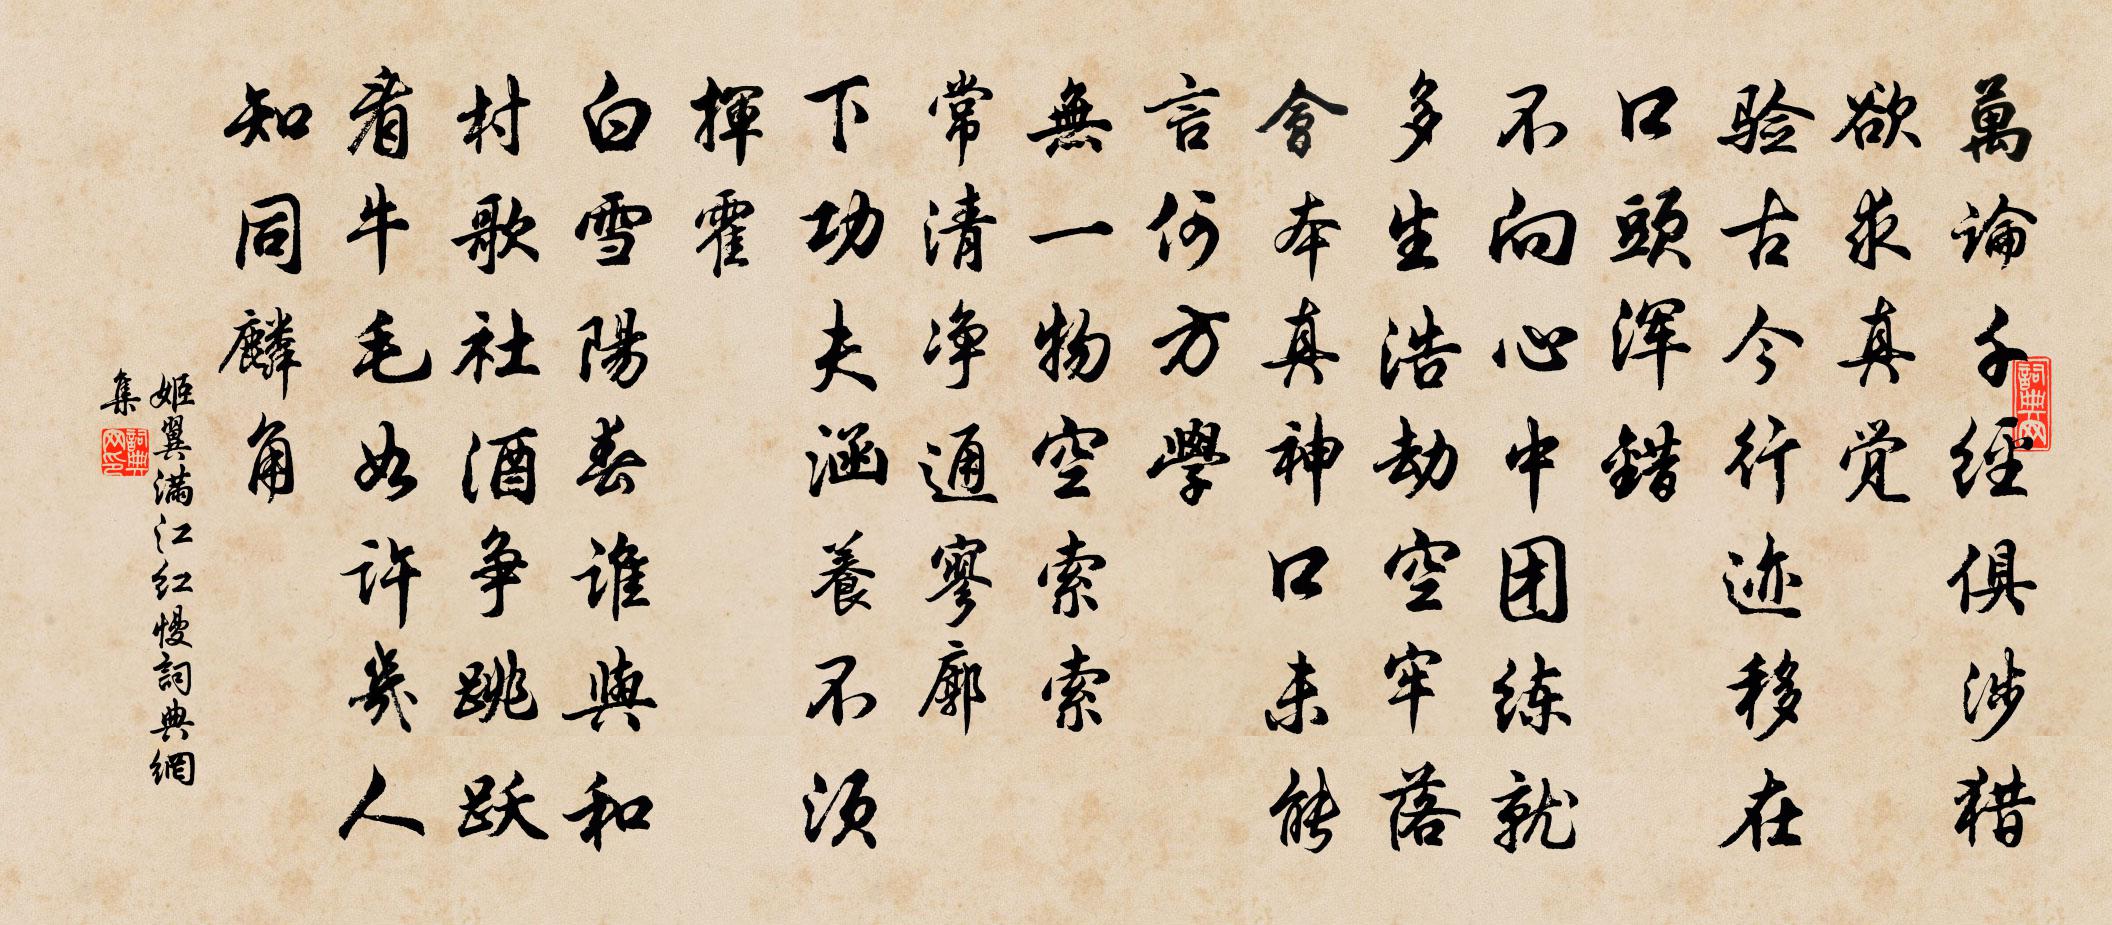 萬論千經俱涉猎
欲求真觉
验古今行迹移在
口頭浑錯
不向心中团练就
多生浩劫空牢落
會本真神口未能
言何方學
無一物空索索
常清净通寥廓
下功夫涵養不须
揮霍
白雪陽春谁與和
村歌社酒争跳跃
看牛毛如许幾人
知同麟角
姬翼满江红慢詞典網
集
詞典网
詞典网印